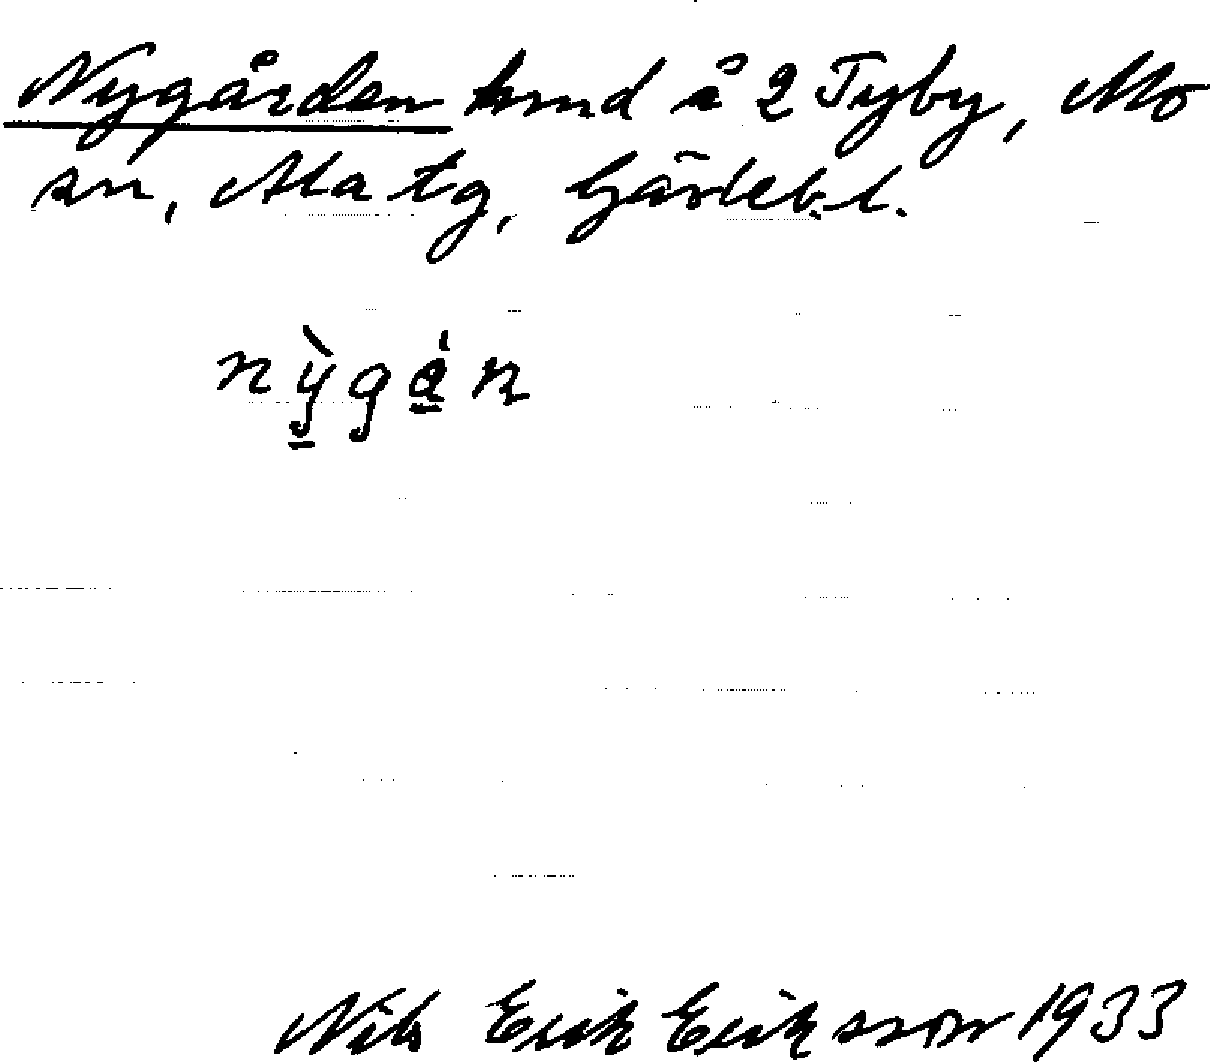 Nygården hmd å 2 Tyby, Mo
sn, Ala tg, Gävleb. l.
nỳgȧn
Nils Erik Eriksson 1933